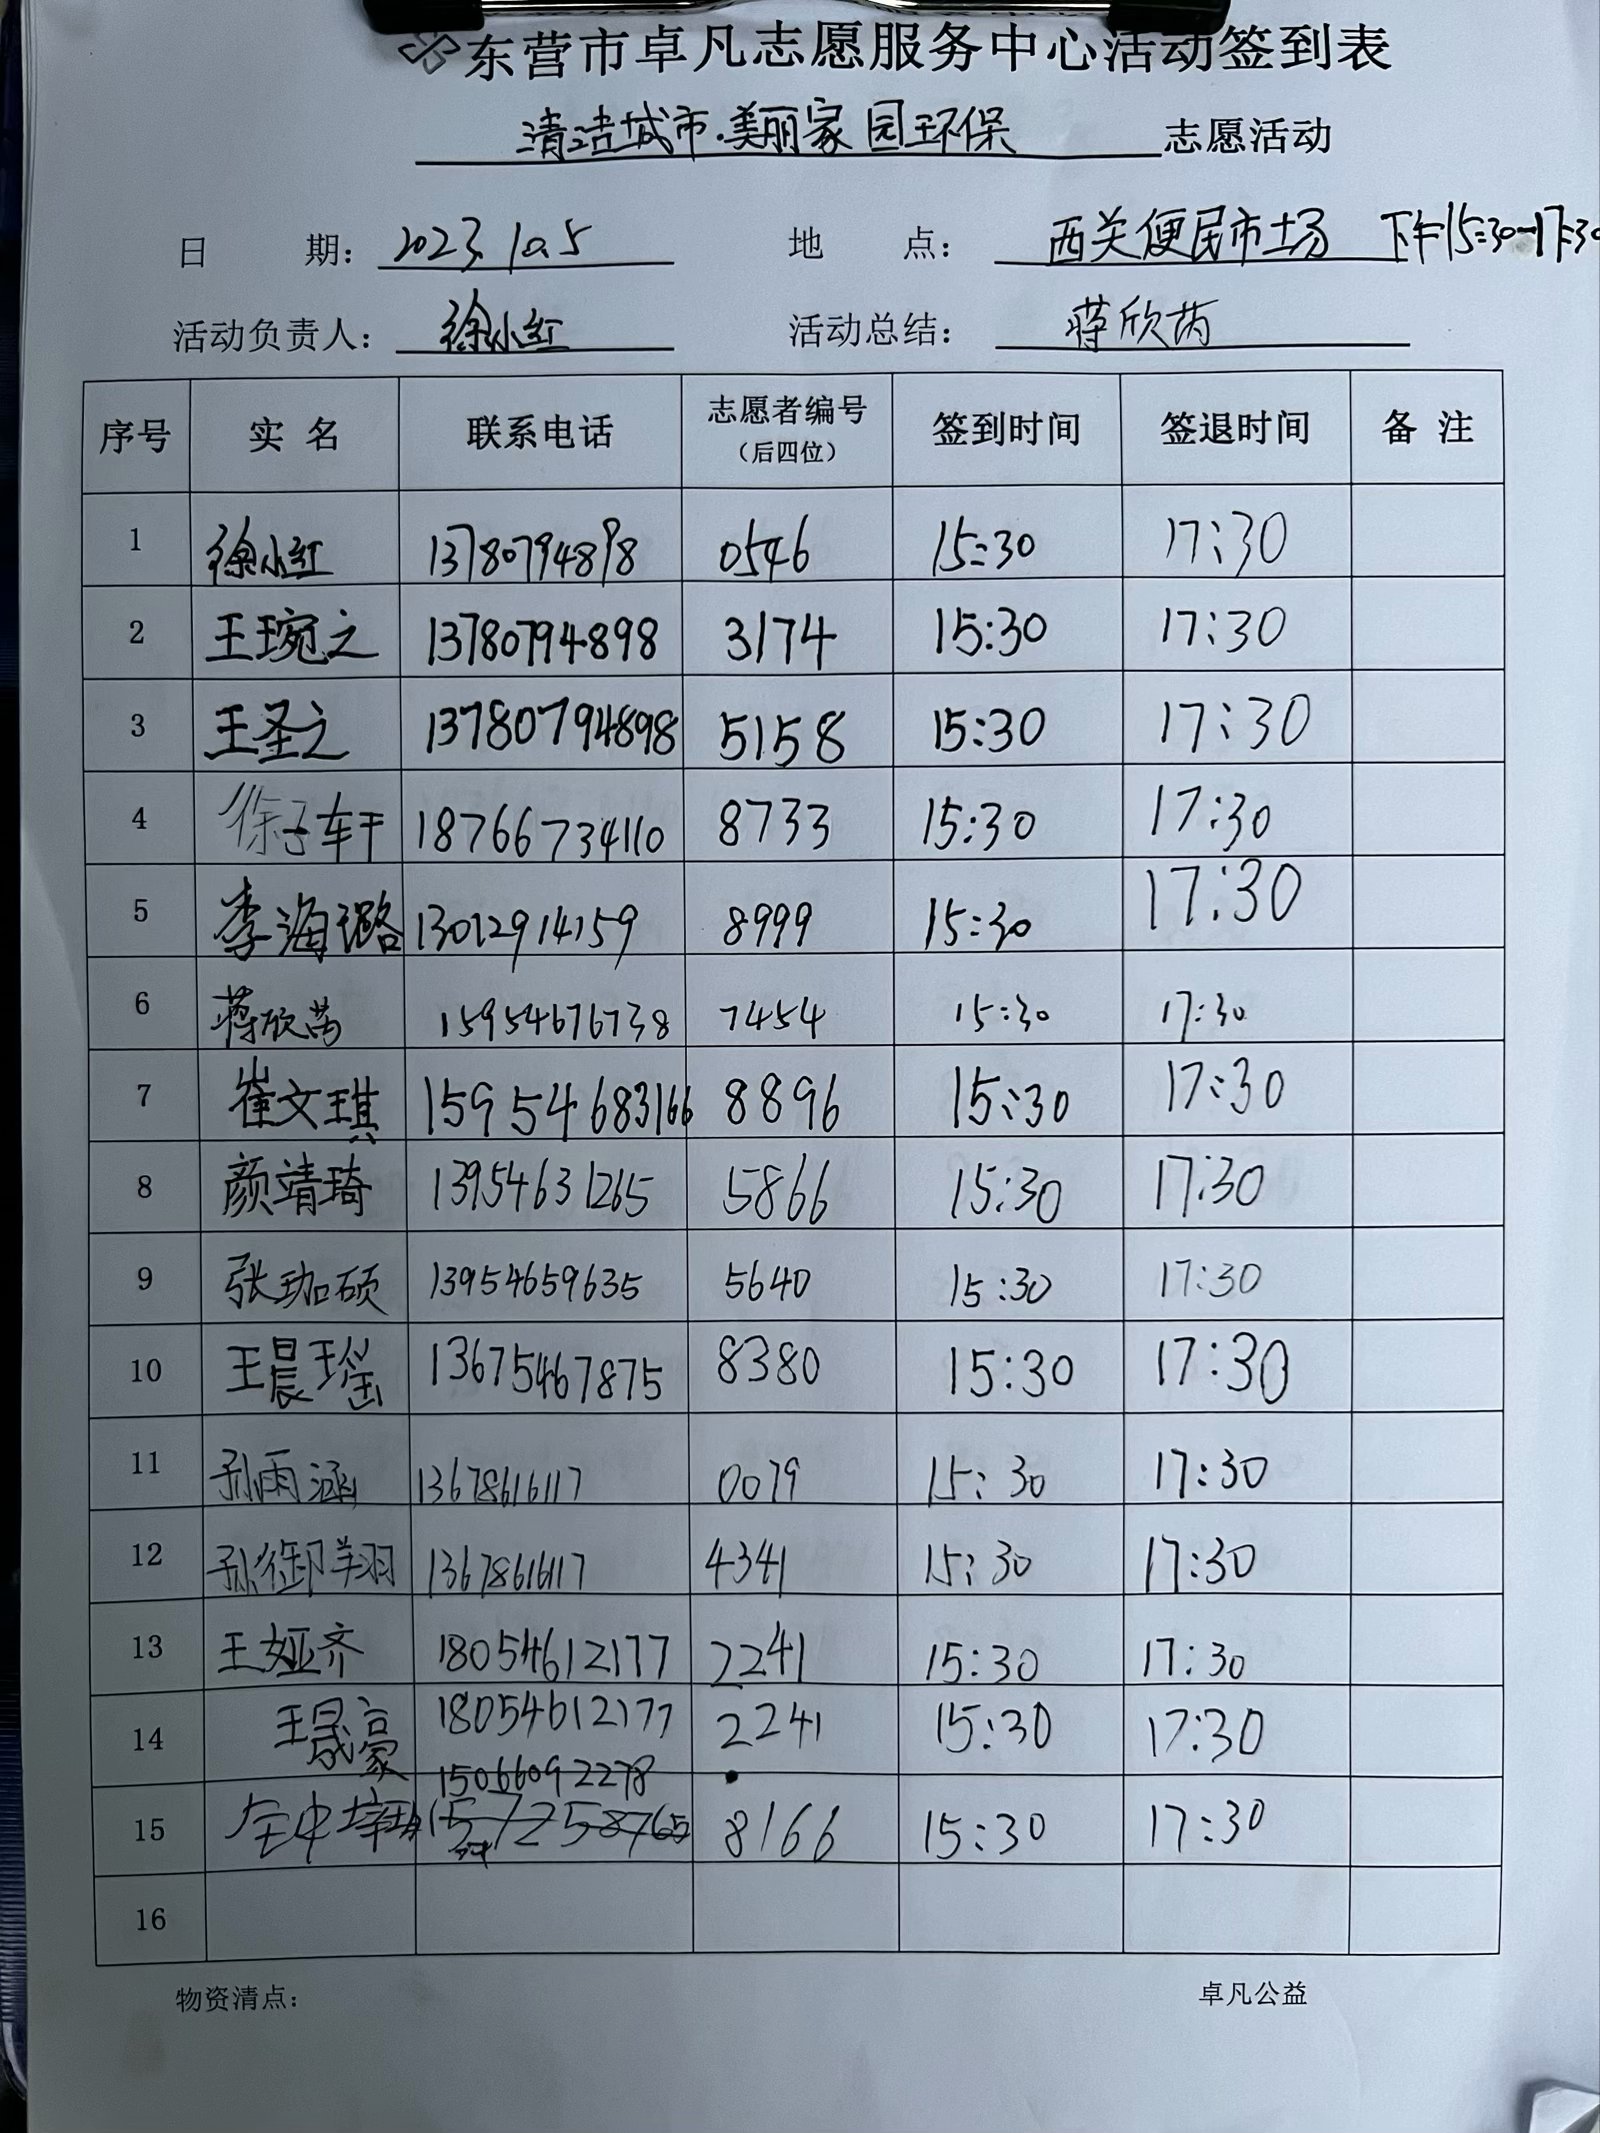 东营市卓凡志愿服务中心活动签到表
清洁城市.美丽家园环保 志愿活动
日 期: 2023.10.5 地 点: 西关便民市场 下午15:30-17:30
活动负责人: 徐小红 活动总结: 蒋欣芮
序号 实 名 联系电话 志愿者编号 (后四位) 签到时间 签退时间 备 注
1 徐小红 13780794898 0546 15:30 17:30
2 王琬之 13780794898 3174 15:30 17:30
3 王圣之 13780794898 5158 15:30 17:30
4 徐子轩 18766734110 8733 15:30 17:30
5 李海璐 13012914159 8999 15:30 17:30
6 蒋欣芮 15954676738 7454 15:30 17:30
7 崔文琪 15954683166 8896 15:30 17:30
8 颜靖琦 13954631265 5866 15:30 17:30
9 张珈硕 13954659635 5640 15:30 17:30
10 王晨瑶 13675467875 8380 15:30 17:30
11 孙雨涵 13678616117 0079 15:30 17:30
12 孙御翔 13678616117 4341 15:30 17:30
13 王娅齐 18054612177 2241 15:30 17:30
14 王晟豪 18054612177 2241 15:30 17:30
15066092278
15 8166 15:30 17:30
16
物资清点: 卓凡公益